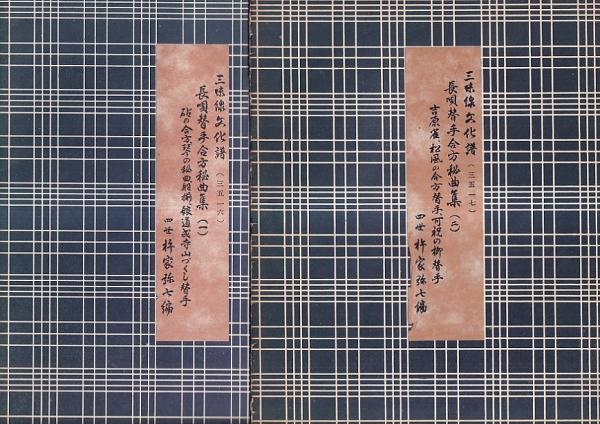 三味線文化譜（三五一六）
長唄替手合方秘曲集（一）
砧の合方琴の秘曲船揃鞍道成寺山づくし替手
四世 杵家弥七編
三味線文化譜（三五一七）
長唄替手合方秘曲集（二）
吉原雀・松風の合方替手・可祝の柳替手
四世 杵家弥七編